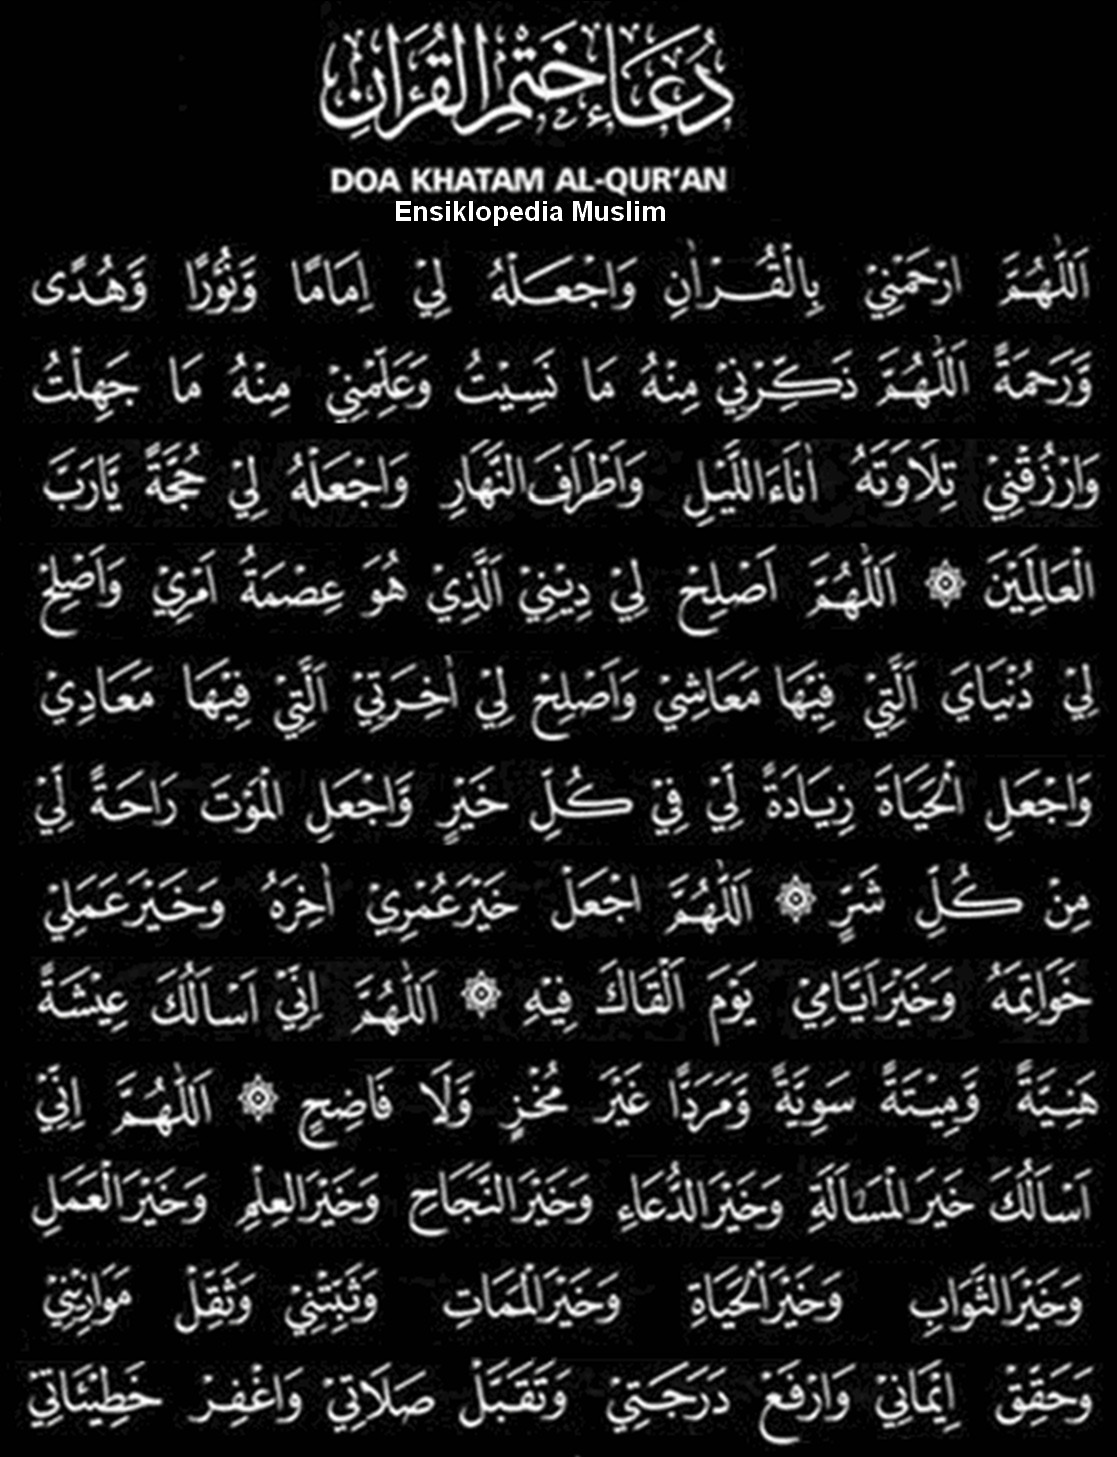 دُعَاءُ خَتْمِ الْقُرْآنِ
DOA KHATAM AL-QUR'AN
Ensiklopedia Muslim
اَللّٰهُمَّ ارْحَمْنِيْ بِالْقُرْاٰنِ وَاجْعَلْهُ لِيْ اِمَامًا وَّنُوْرًا وَّهُدًى
وَّرَحْمَةً اَللّٰهُمَّ ذَكِّرْنِيْ مِنْهُ مَا نَسِيْتُ وَعَلِّمْنِيْ مِنْهُ مَا جَهِلْتُ
وَارْزُقْنِيْ تِلَاوَتَهُ اٰنَاءَ اللَّيْلِ وَاَطْرَافَ النَّهَارِ وَاجْعَلْهُ لِيْ حُجَّةً يَّارَبَّ
الْعَالَمِيْنَ ۞ اَللّٰهُمَّ اَصْلِحْ لِيْ دِيْنِيْ الَّذِيْ هُوَ عِصْمَةُ اَمْرِيْ وَاَصْلِحْ
لِيْ دُنْيَايَ الَّتِيْ فِيْهَا مَعَاشِيْ وَاَصْلِحْ لِيْ اٰخِرَتِيْ الَّتِيْ فِيْهَا مَعَادِيْ
وَاجْعَلِ الْحَيَاةَ زِيَادَةً لِّيْ فِيْ كُلِّ خَيْرٍ وَّاجْعَلِ الْمَوْتَ رَاحَةً لِّيْ
مِنْ كُلِّ شَرٍّ ۞ اَللّٰهُمَّ اجْعَلْ خَيْرَ عُمْرِيْ اٰخِرَهُ وَخَيْرَ عَمَلِيْ
خَوَاتِمَهُ وَخَيْرَ اَيَّامِيْ يَوْمَ اَلْقَاكَ فِيْهِ ۞ اَللّٰهُمَّ اِنِّيْ اَسْاَلُكَ عِيْشَةً
هَنِيَّةً وَّمِيْتَةً سَوِيَّةً وَّمَرَدًّا غَيْرَ مُخْزٍ وَّلَا فَاضِحٍ ۞ اَللّٰهُمَّ اِنِّيْ
اَسْاَلُكَ خَيْرَ الْمَسْاَلَةِ وَخَيْرَ الدُّعَاءِ وَخَيْرَ النَّجَاحِ وَخَيْرَ الْعِلْمِ وَخَيْرَ الْعَمَلِ
وَخَيْرَ الثَّوَابِ وَخَيْرَ الْحَيَاةِ وَخَيْرَ الْمَمَاتِ وَثَبِّتْنِيْ وَثَقِّلْ مَوَازِيْنِيْ
وَحَقِّقْ اِيْمَانِيْ وَارْفَعْ دَرَجَتِيْ وَتَقَبَّلْ صَلَاتِيْ وَاغْفِرْ خَطِيْئَاتِيْ